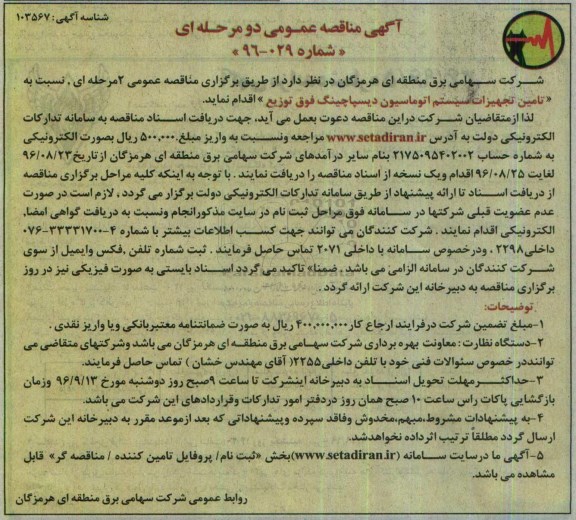 شناسه آگهی: ۱۰۳۵۶۷
آگهی مناقصه عمومی دو مرحله ای
« شماره ۰۲۹-۹۶ »
شرکت سهامی برق منطقه ای هرمزگان در نظر دارد از طریق برگزاری مناقصه عمومی ۲مرحله ای , نسبت به
« تامین تجهیزات سیستم اتوماسیون دیسپاچینگ فوق توزیع » اقدام نماید.
لذا ازمتقاضیان شرکت دراین مناقصه دعوت بعمل می آید، جهت دریافت اسناد مناقصه به سامانه تدارکات
الکترونیکی دولت به آدرس www.setadiran.ir مراجعه ونسبت به واریز مبلغ ۵۰۰,۰۰۰ ریال بصورت الکترونیکی
به شماره حساب ۲۱۷۵۰۹۵۴۰۲۰۰۲ بنام سایر درآمدهای شرکت سهامی برق منطقه ای هرمزگان از تاریخ ۹۶/۰۸/۲۳
لغایت ۹۶/۰۸/۲۵ اقدام ویک نسخه از اسناد مناقصه را دریافت نمایند . با توجه به اینکه کلیه مراحل برگزاری مناقصه
از دریافت اسناد تا ارائه پیشنهاد از طریق سامانه تدارکات الکترونیکی دولت برگزار می گردد , لازم است در صورت
عدم عضویت قبلی شرکتها در سامانه فوق مراحل ثبت نام در سایت مذکورانجام ونسبت به دریافت گواهی امضاء
الکترونیکی اقدام نمایند . شرکت کنندگان می توانند جهت کسب اطلاعات بیشتر با شماره ۴-۳۳۳۳۱۷۰۰-۰۷۶
داخلی۲۲۹۸ , ودرخصوص سامانه با داخلی ۲۰۷۱ تماس حاصل فرمایند . ثبت شماره تلفن ,فکس وایمیل از سوی
شرکت کنندگان در سامانه الزامی می باشد . ضمنا" تاکید می گردد اسناد بایستی به صورت فیزیکی نیز در روز
برگزاری مناقصه به دبیرخانه این شرکت ارائه گردد .
توضیحات:
۱-مبلغ تضمین شرکت درفرایند ارجاع کار ۴۰۰,۰۰۰,۰۰۰ ریال به صورت ضمانتنامه معتبربانکی ویا واریز نقدی .
۲-دستگاه نظارت : معاونت بهره برداری شرکت سهامی برق منطقه ای هرمزگان می باشد وشرکتهای متقاضی می
تواننددر خصوص سئوالات فنی خود با تلفن داخلی۲۲۵۵( آقای مهندس خشان ) تماس حاصل فرمایند.
۳-حداکثر مهلت تحویل اسناد به دبیرخانه اینشرکت تا ساعت ۹صبح روز دوشنبه مورخ ۹۶/۹/۱۳ وزمان
بازگشایی پاکات راس ساعت ۱۰ صبح همان روز دردفتر امور تدارکات وقراردادهای این شرکت می باشد.
۴-به پیشنهادات مشروط,مبهم,مخدوش وفاقد سپرده وپیشنهاداتی که بعد ازموعد مقرر به دبیرخانه این شرکت
ارسال گردد مطلقاً ترتیب اثرداده نخواهدشد.
۵-آگهی ما درسایت سامانه (www.setadiran.ir)بخش «ثبت نام/ پروفایل تامین کننده / مناقصه گر» قابل
مشاهده می باشد.
روابط عمومی شرکت سهامی برق منطقه ای هرمزگان